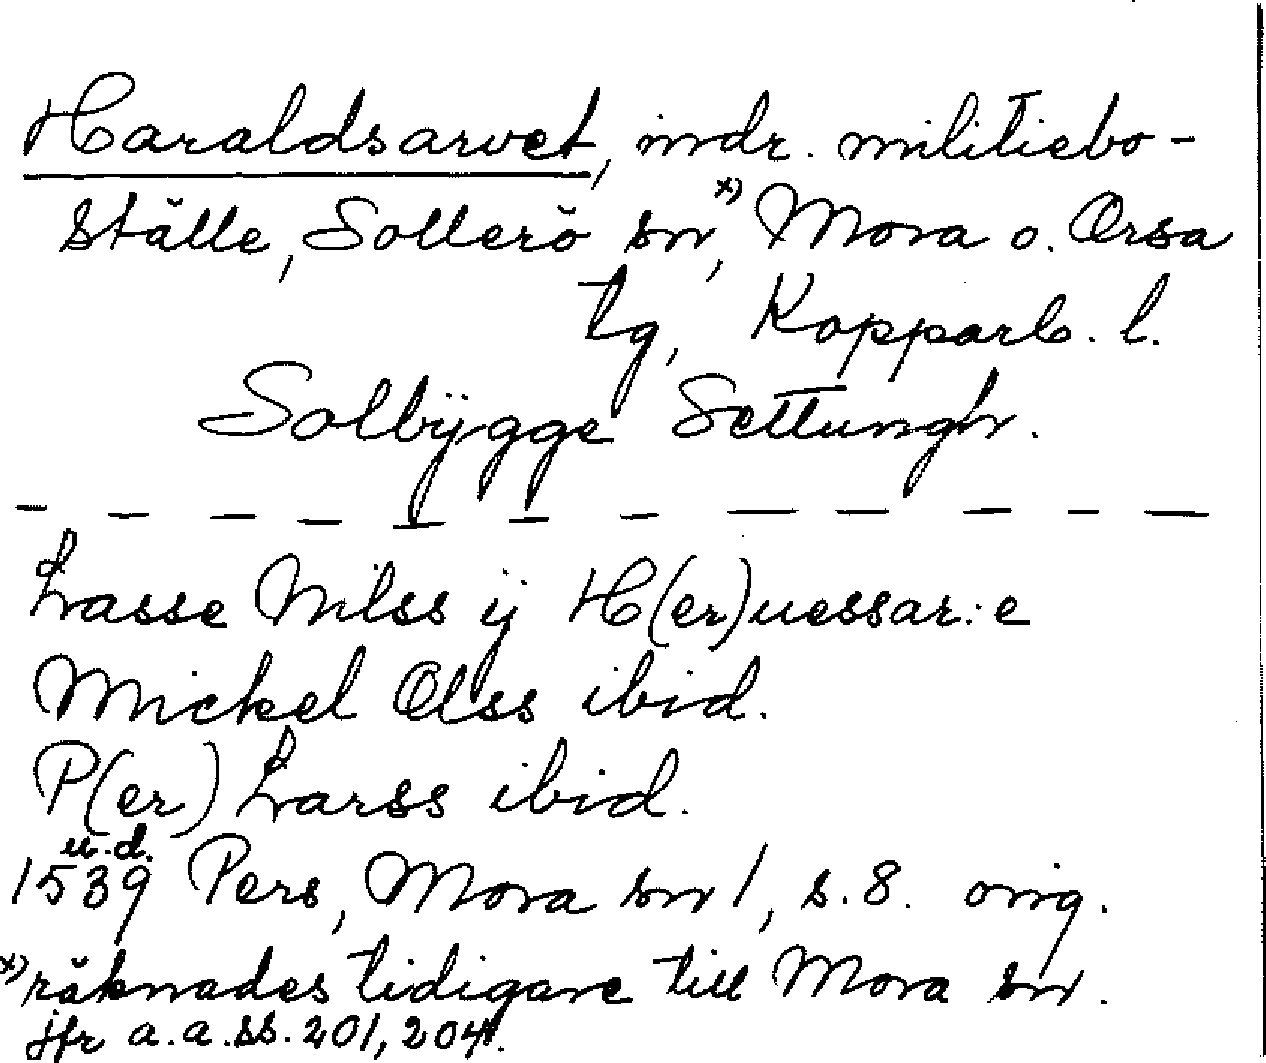 Haraldsarvet, indr. militiebo-
ställe, Sollerö sn,x) Mora o. Orsa
tg, Kopparb. l.
Solbÿgge Settungh.
Lasse Nilss ij H(er)uessar:e
Mickel Olss ibid.
P(er) Larss ibid.
u.d.
1539 Pers, Mora sn 1, s. 8. orig.
x) räknades tidigare till Mora sn.
jfr a.a.ss. 201, 204.